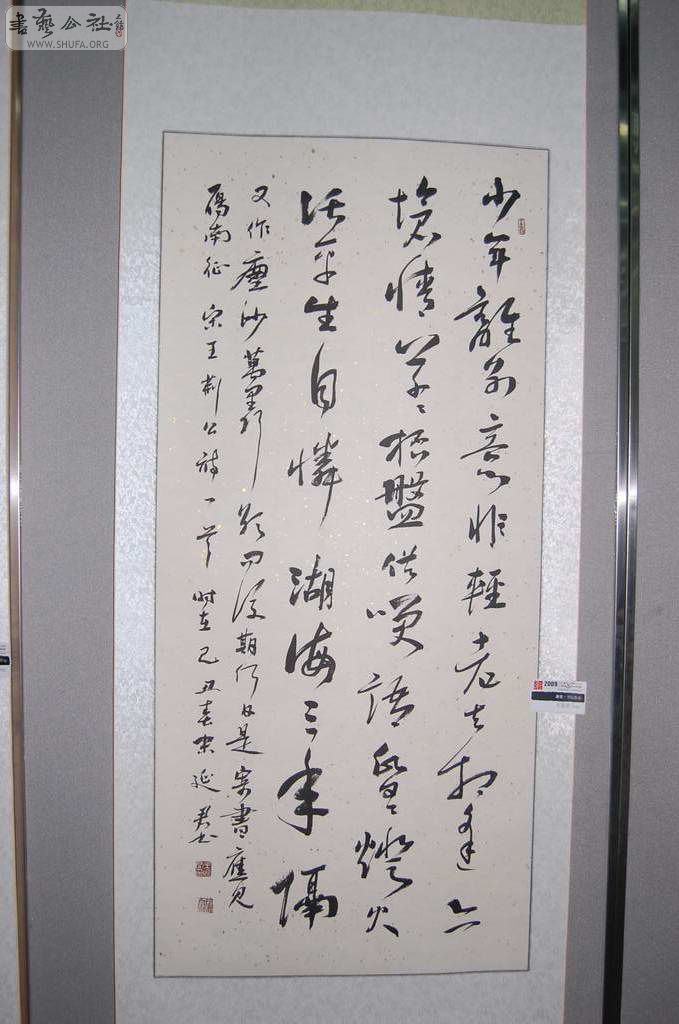 書藝公社
WWW.SHUFA.ORG
少年離別意非輕老去相逢亦
愴情草草杯盤供咲語昏昏燈火
話平生自憐湖海三年隔
又作塵沙萬里行欲問後期何日是寄書應見
鴈南征 宋王荊公詩一首 时在己丑春宋延
2009